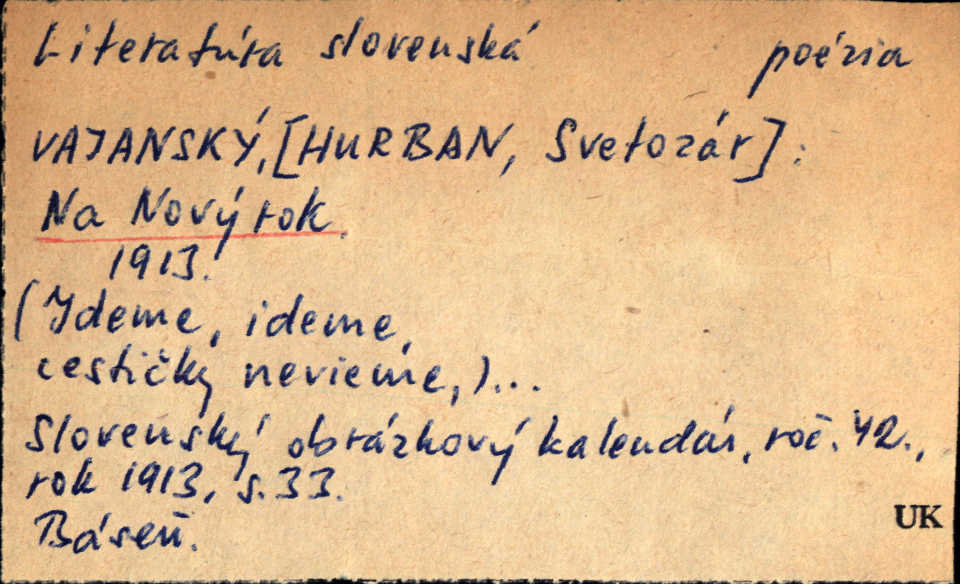 Literatúra slovenská poézia
VAJANSKÝ, [HURBAN, Svetozár]:
Na Nový rok.
1913.
(Ideme, ideme,
cestičky nevieme,)...
Slovenský obrázkový kalendár, roč. 42.,
rok 1913, s. 33.
Báseň.
UK